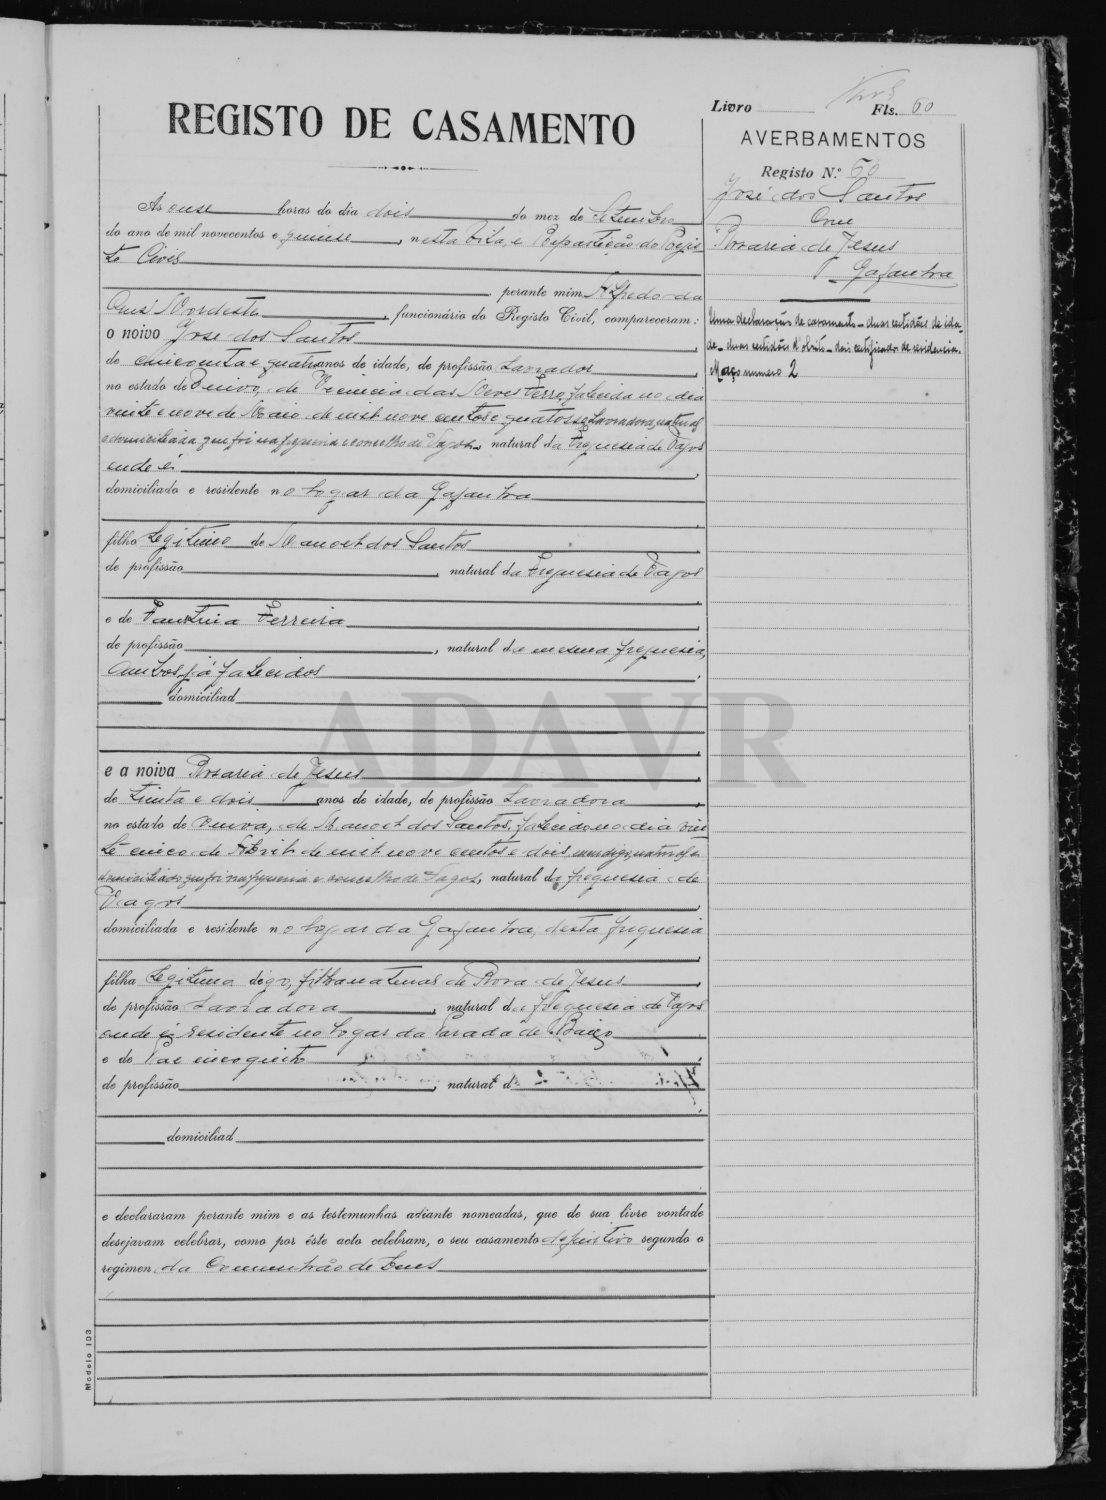 Livro Fls. 60
REGISTO DE CASAMENTO
AVERBAMENTOS
Registo N.º 60
José dos Santos
com
Rosaria de Jesus
Gafanha
Uma declaração de casamento - duas certidões de ida-
de - duas certidões d'obito - dois certificados de residencia.
Março numero 2
Ás onse horas do dia dois do mez de Setembro
do ano de mil novecentos e quinse, nesta Vila, e Repartição do Regis-
to Civil
perante mim Alfredo da
Cruz Nordeste, funcionário do Registo Civil, compareceram:
o noivo José dos Santos
de cincoenta e quatro anos de idade, de profissão Lavrador
no estado de Viuvo, de Vicencia das Neves Ferro, falecida no dia
vinte e nove de Maio de mil nove centos e quatorse, Lavradora, natural
e domiciliada que foi na freguesia e concelho de Vagos, natural da Freguesia de Vagos
onde é
domiciliado e residente no logar da Gafanha
filho legitimo de Manoel dos Santos
de profissão, natural da Freguesia de Vagos
e de Faustina Ferreira
de profissão, natural da mesma freguesia,
ambos já falecidos
domiciliad
ADAVR
e a noiva Rosaria de Jesus
de trinta e dois anos de idade, de profissão Lavradora
no estado de Viuva, de Manoel dos Santos, falecido no dia vin-
te cinco de Abril de mil nove centos e dois, mendigo, natural e
domiciliado que foi na freguesia e concelho de Vagos, natural da freguesia de
Vagos
domiciliada e residente no logar da Gafanha, desta freguesia
filha Legitima digo, filha natural de Rosa de Jesus
de profissão Lavradora, natural da freguesia de Vagos
onde é residente no logar da Parada de Baixo
e de Pae incognito
de profissão, natural d
domiciliad
e declararam perante mim e as testemunhas adiante nomeadas, que de sua livre vontade
desejavam celebrar, como por êste acto celebram, o seu casamento definitivo segundo o
regimen da Comunhão de bens
Modelo 103